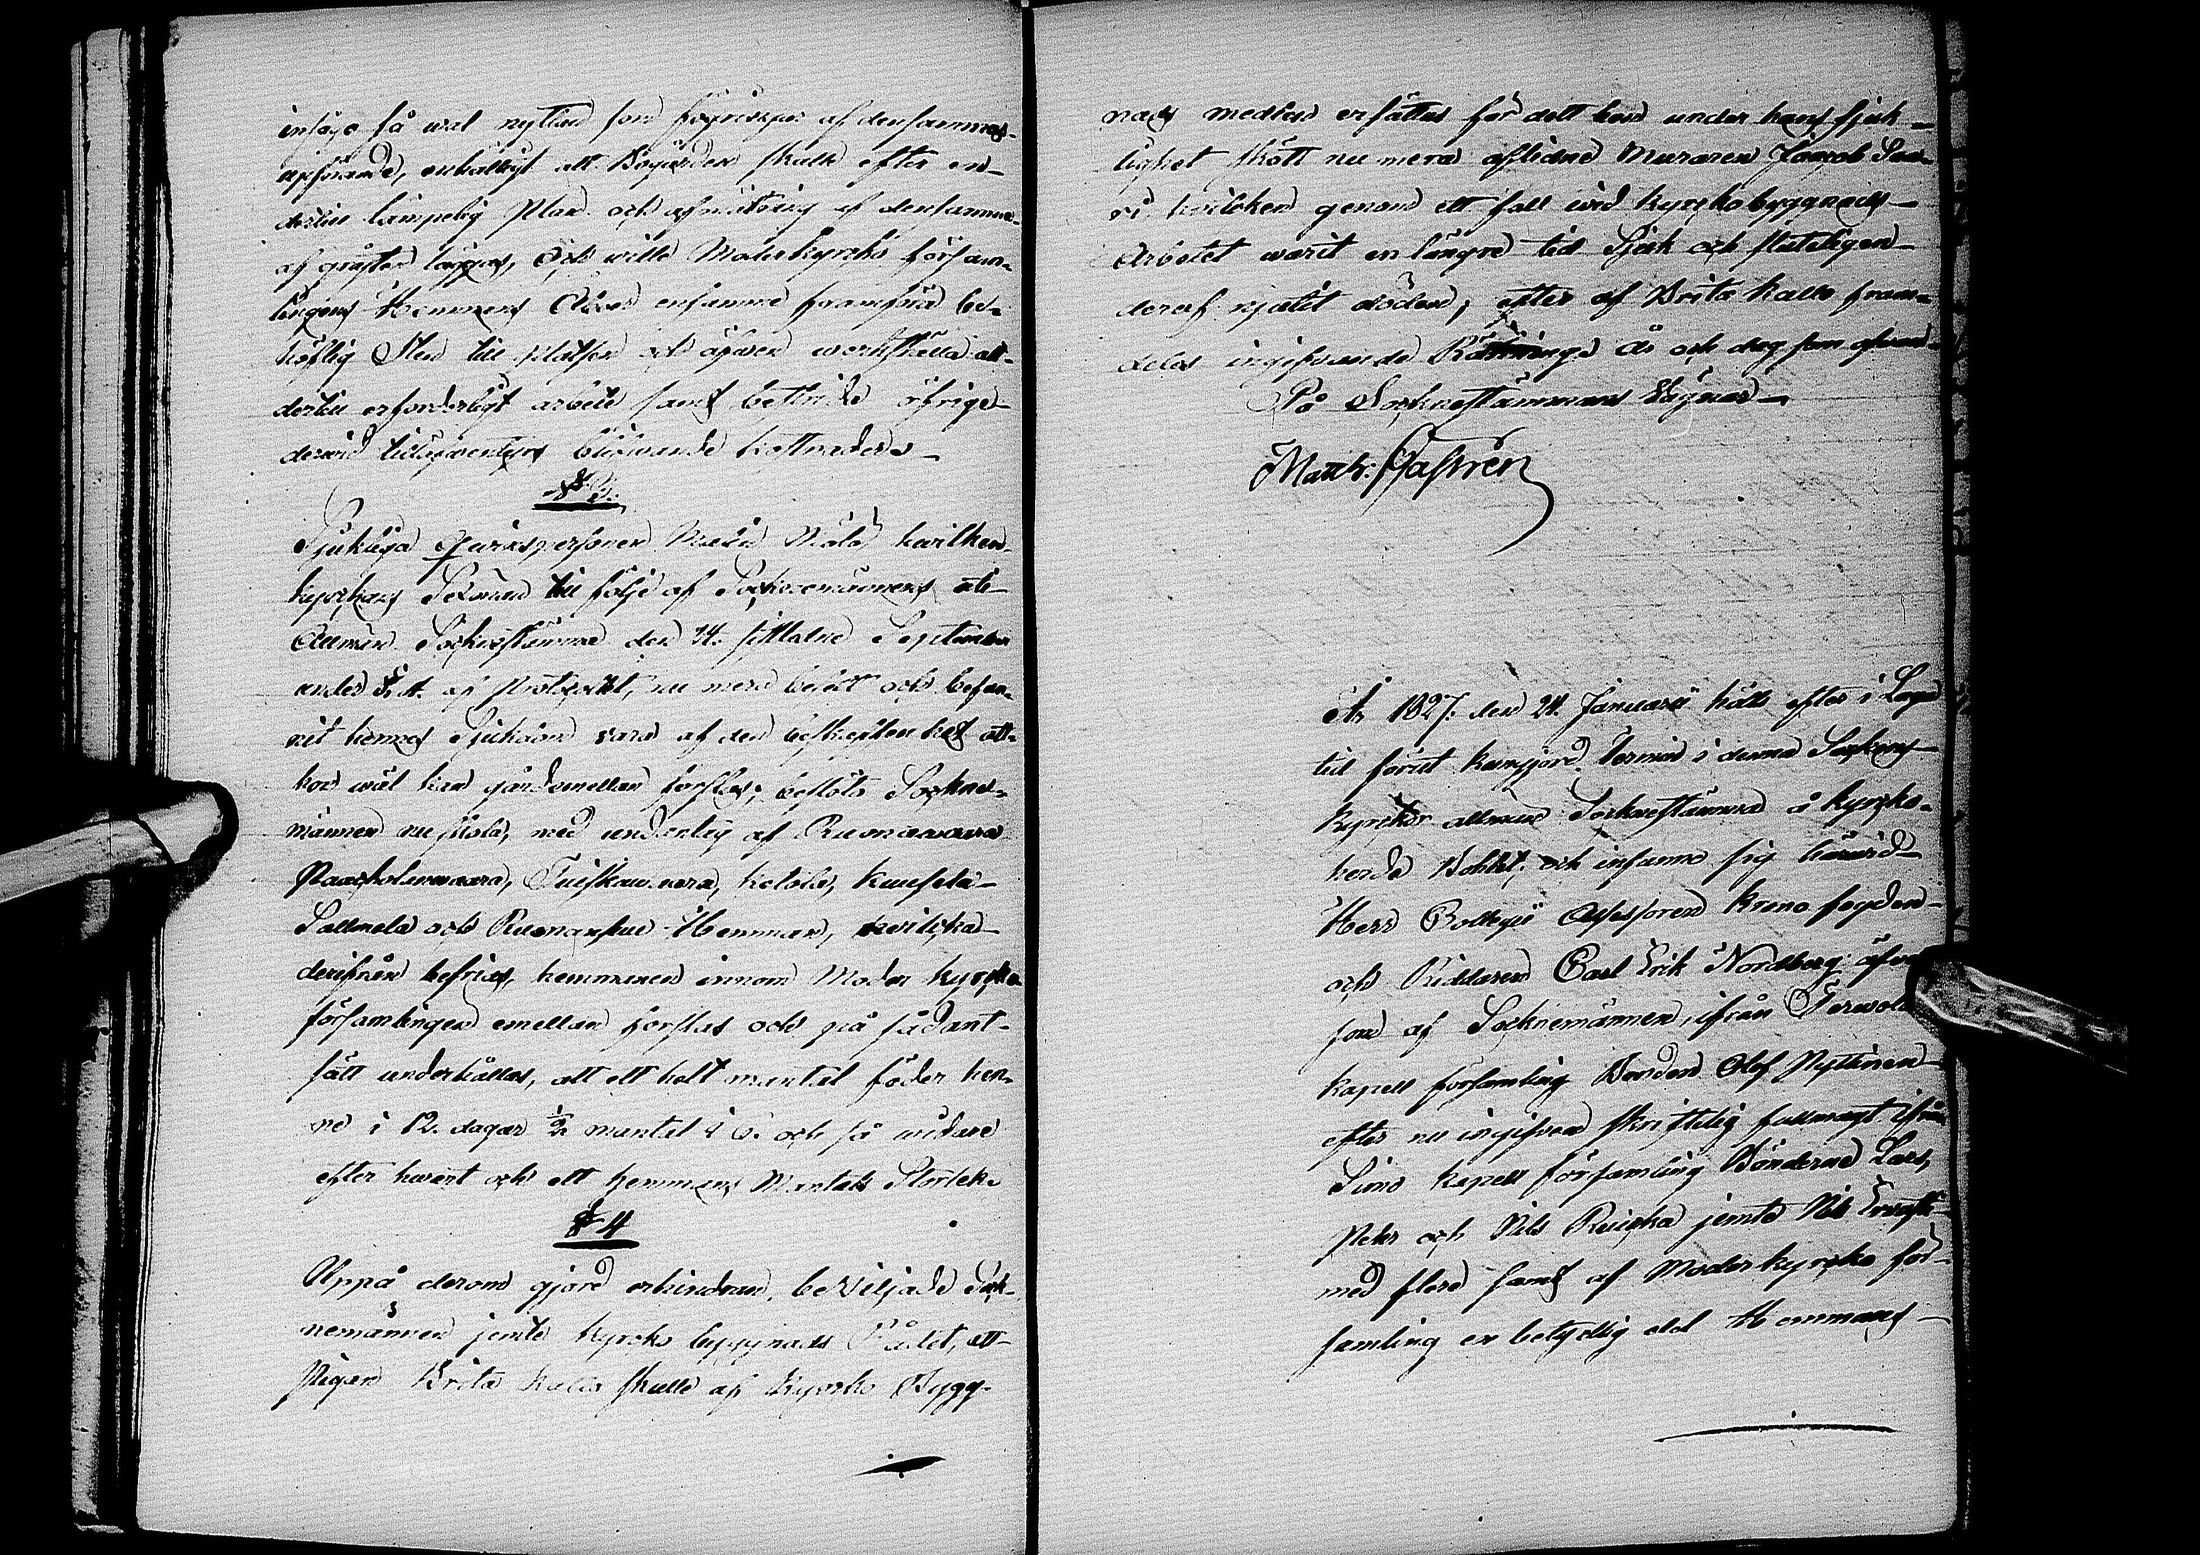 insågo så wäl nyttan som
upförande, enhälligt att Bogården skulle efter en
dertill lämpelig Plan och afmätning af densamma
af gråsten läggas, Och wille Moderkyrko försam-
lingens Hemmans Åboer ensamme framföra be-
höflig Sten till platsen och äfwen werkställa allt
dertill erforderligt arbete samt bestrida öfrige
derwid tilläfwentyrs blifwande kostnader.
§ 3.
Sjukliga Qwinspersonen Malin Mälä hwilken
kyrkans Sexman till följe af Socknemännens
Allmän Sockne Stämma den 24. sistledne September
under § 1. af Protocollet, nu mera besett och befun-
nit hennes Sjukdom vara af den beskaffenhet att
hon wäl kan gårdemellan forslas; beslöto Sockne-
männen nu sålla, med undantag af Ruonawaara
Paakkolanwaara, Tuiskawaara, Ketola, Kuusela
Sallmela och Ruonansuu Hemman, hwilcka
derifrån befrias, hemmanen innom Moder kyrcko
församlingen emellan forslas och på sådant
sätt underhållas, att ett helt mantal föder hen-
ne i 12. dagar ½ mantal i 6. och så widare
efter hwart och ett hemmans Mantals Storlek.
§ 4
Uppå derom gjord erhindran, beviljade Sock-
nemännen jemte Kyrko byggnads Rådet, att
Pigan Brita Kallo skulle af Kyrko Bygg-
nads medlen ersättas för dett hon under hans sjuk-
lighet skött nu mera aflidne Muraren Jacob Saa-
ri hwilcken genom ett fall wid kyrckobyggnads
Arbetet warit en längre tid Sjuk och slutligen
deraf njutit döden, efter af Brita Kallo fram-
deles ingifwande Räkning. År och dag som ofwan
På Sockne Stämmans Wägnar
Matth: Castrén
År 1827. den 24. Januarii hölls efter i Laga
tid förut kungjord Termin i denna Sockens
Kyrckor allmän Sockne Stämma å kyrcko-
herde Bohlet, och infanns sig härwid
Herr Collegii Assessoren Krono fogden
och Riddaren Carl Erik Nordberg äfwen
som af Socknemännen, ifrån Terwola
kapell församling Bonden Olof Pyttinen
efter nu ingifven skriftelig fullmagt ifrån
Simo kapell församling Bönderne Lars,
Pehr och Nils Ruicka jemte Nils
med flere samt af Moderkyrcko för-
samling en betydlig del Hemmans